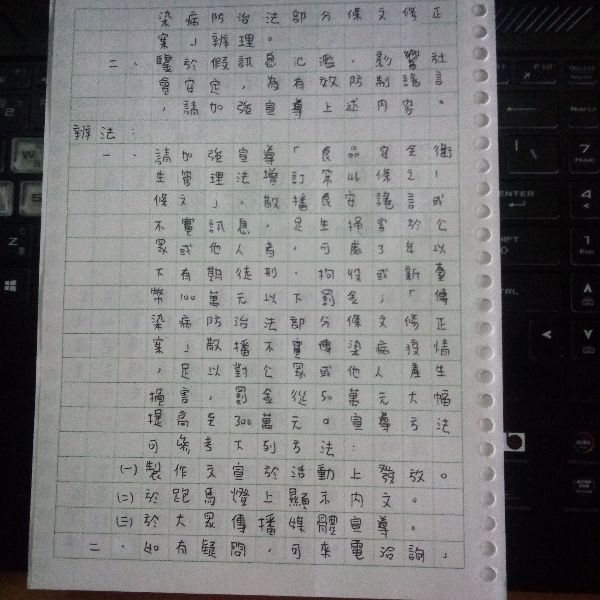 染病防治法部分條文修正
案」辦理。
二、鑒於假訊息氾濫,影響社
會安定,為有效防制謠言
,請加強宣導上述內容。
辦法:
一、請加強宣導「食品安全衛
生管理法增訂第46條之1
條文」,散播食安謠言或
不實訊息,足生損害於公
眾或他人者,可處3年以
下有期徒刑、拘役或新臺
幣100萬元以下罰金;「傳
染病防治法部分條文修正
案」散播不實傳染病疫情
,足以對公眾或他人產生
損害,罰金從50萬元大幅
提高至300萬元。宣導方法
可參考下列方法:
(一)製作文宣於活動上發放。
(二)於跑馬燈上顯示內文。
(三)於大眾傳播媒體宣導。
二、如有疑問,可來電洽詢,